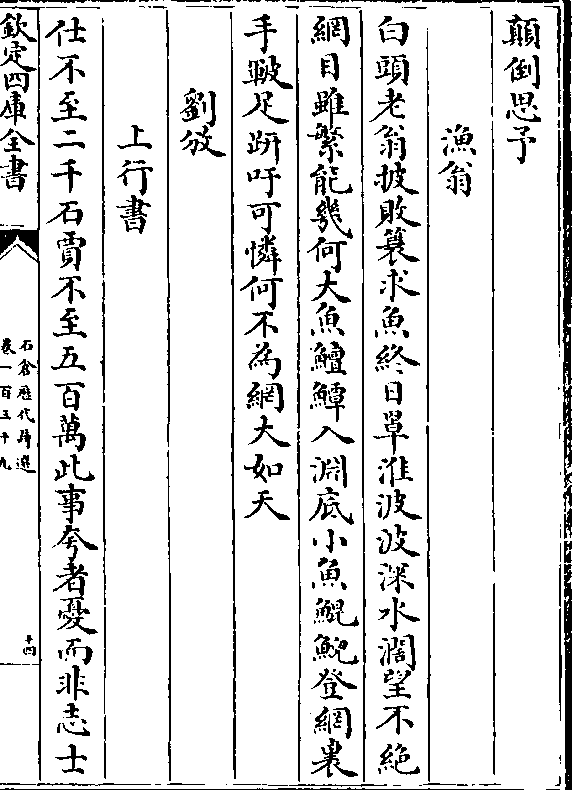 顛倒思予
漁翁
白頭老翁披敗蓑求魚終日罩淮波波深水濶望不絶
網目雖繁能幾何大魚鱣鱏入淵底小魚鯤鯢登網裏
手皸足趼吁可憐何不為網大如天
劉攽
上行書
仕不至二千石賈不至五百萬此事夸者憂而非志士
欽定四庫全書
石倉歴代詩選
卷一百五十九
十四